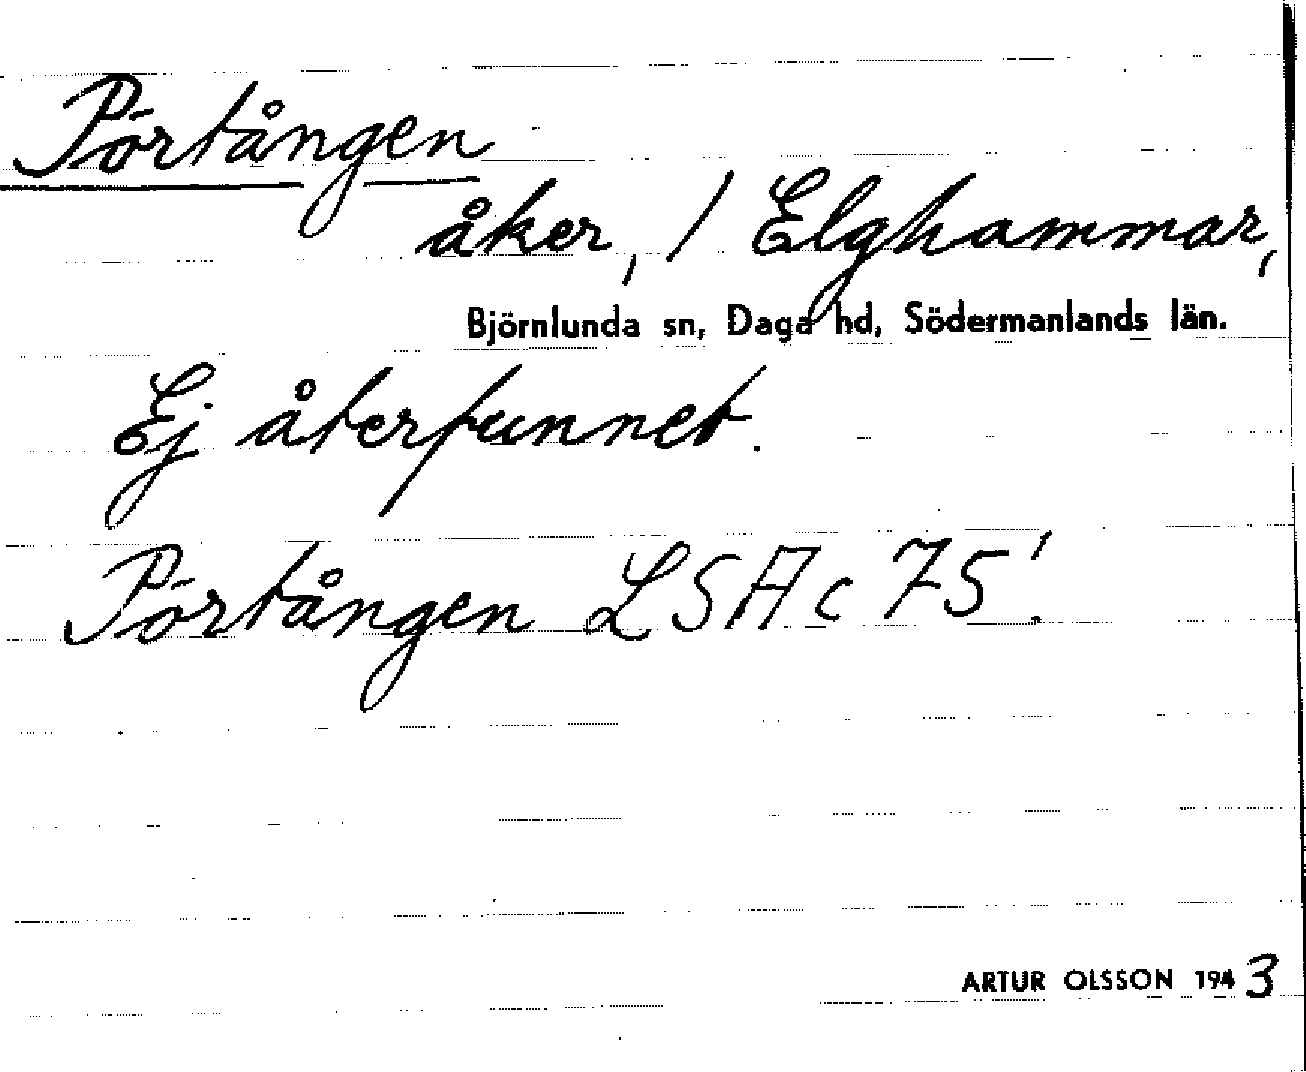 Pörtången
åker, / Elghammar,
Björnlunda sn, Daga hd, Södermanlands län.
Ej återfunnet.
Pörtången LSA c 75!
ARTUR OLSSON 1943